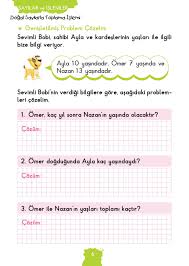 SAYILAR ve İŞLEMLER
Doğal Sayılarla Toplama İşlemi
Genişletilmiş Problem Çözelim
Sevimli Bobi, sahibi Ayla ve kardeşlerinin yaşları ile ilgili
bize bilgi veriyor.
Ayla 10 yaşındadır. Ömer 7 yaşında ve
Nazan 13 yaşındadır.
Sevimli Bobi'nin verdiği bilgilere göre, aşağıdaki problem-
leri çözelim.
1. Ömer, kaç yıl sonra Nazan'ın yaşında olacaktır?
Çözüm:
2. Ömer doğduğunda Ayla kaç yaşındaydı?
Çözüm:
3. Ömer ile Nazan'ın yaşları toplamı kaçtır?
Çözüm: